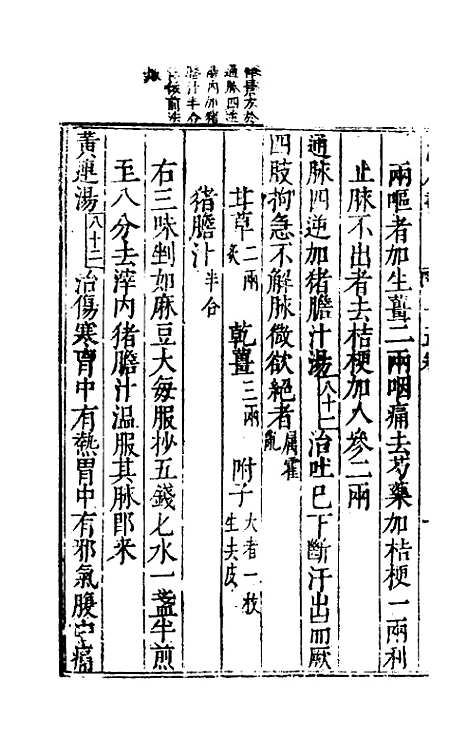 兩嘔者加生薑二兩咽痛去芍藥加桔梗一兩利
止脉不出者去桔梗加人參二兩
通脉四逆加猪膽汁湯八十一治吐已下斷汗出而厥
四肢拘急不解脉微欲絕者屬霍亂
甘草二兩炙 乾薑三兩 附子大者一枚生去皮
猪膽汁半合
右三味剉如麻豆大每服抄五錢匕水一盞半煎
至八分去滓內猪膽汁溫服其脉即来
黃連湯八十二治傷寒胷中有熱胃中有邪氣腹中痛
通脉四逆
湯內加猪
膽汁半合